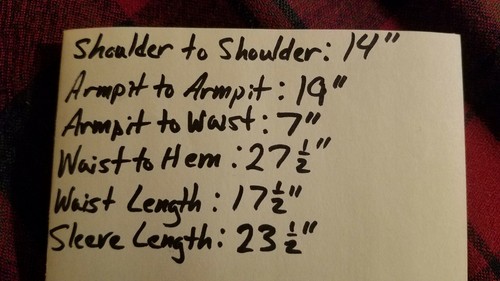 Shoulder to Shoulder: 14"
Armpit to Armpit: 19"
Armpit to Waist: 7"
Waist to Hem: 27 1/2"
Waist Length: 17 1/2"
Sleeve Length: 23 1/2"